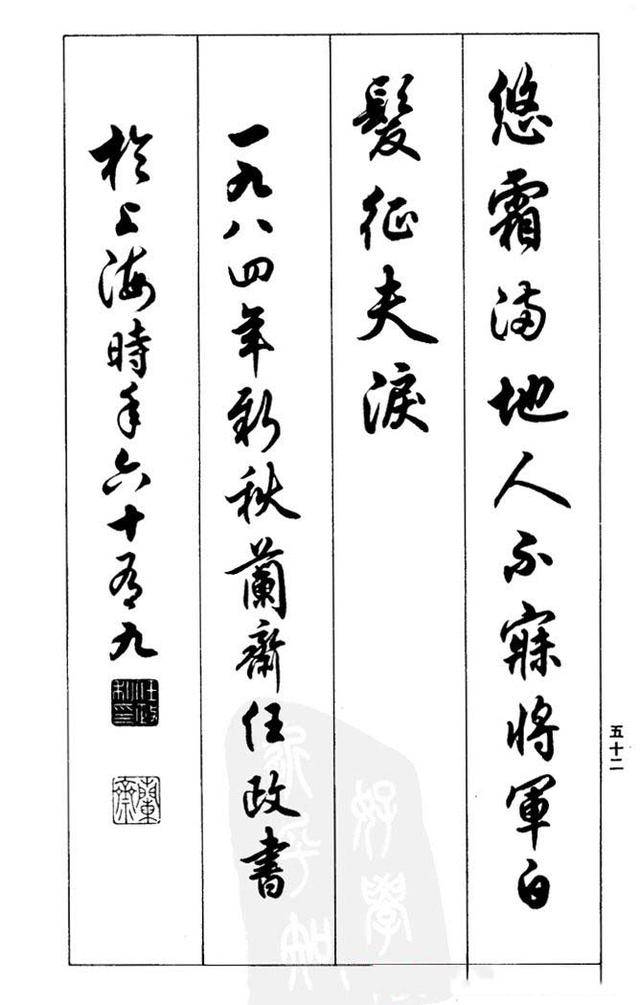 悠霜满地人不寐將軍白
髮征夫淚
一九八四年新秋蘭齋任政書
於上海時年六十有九
蘭齋
五十二